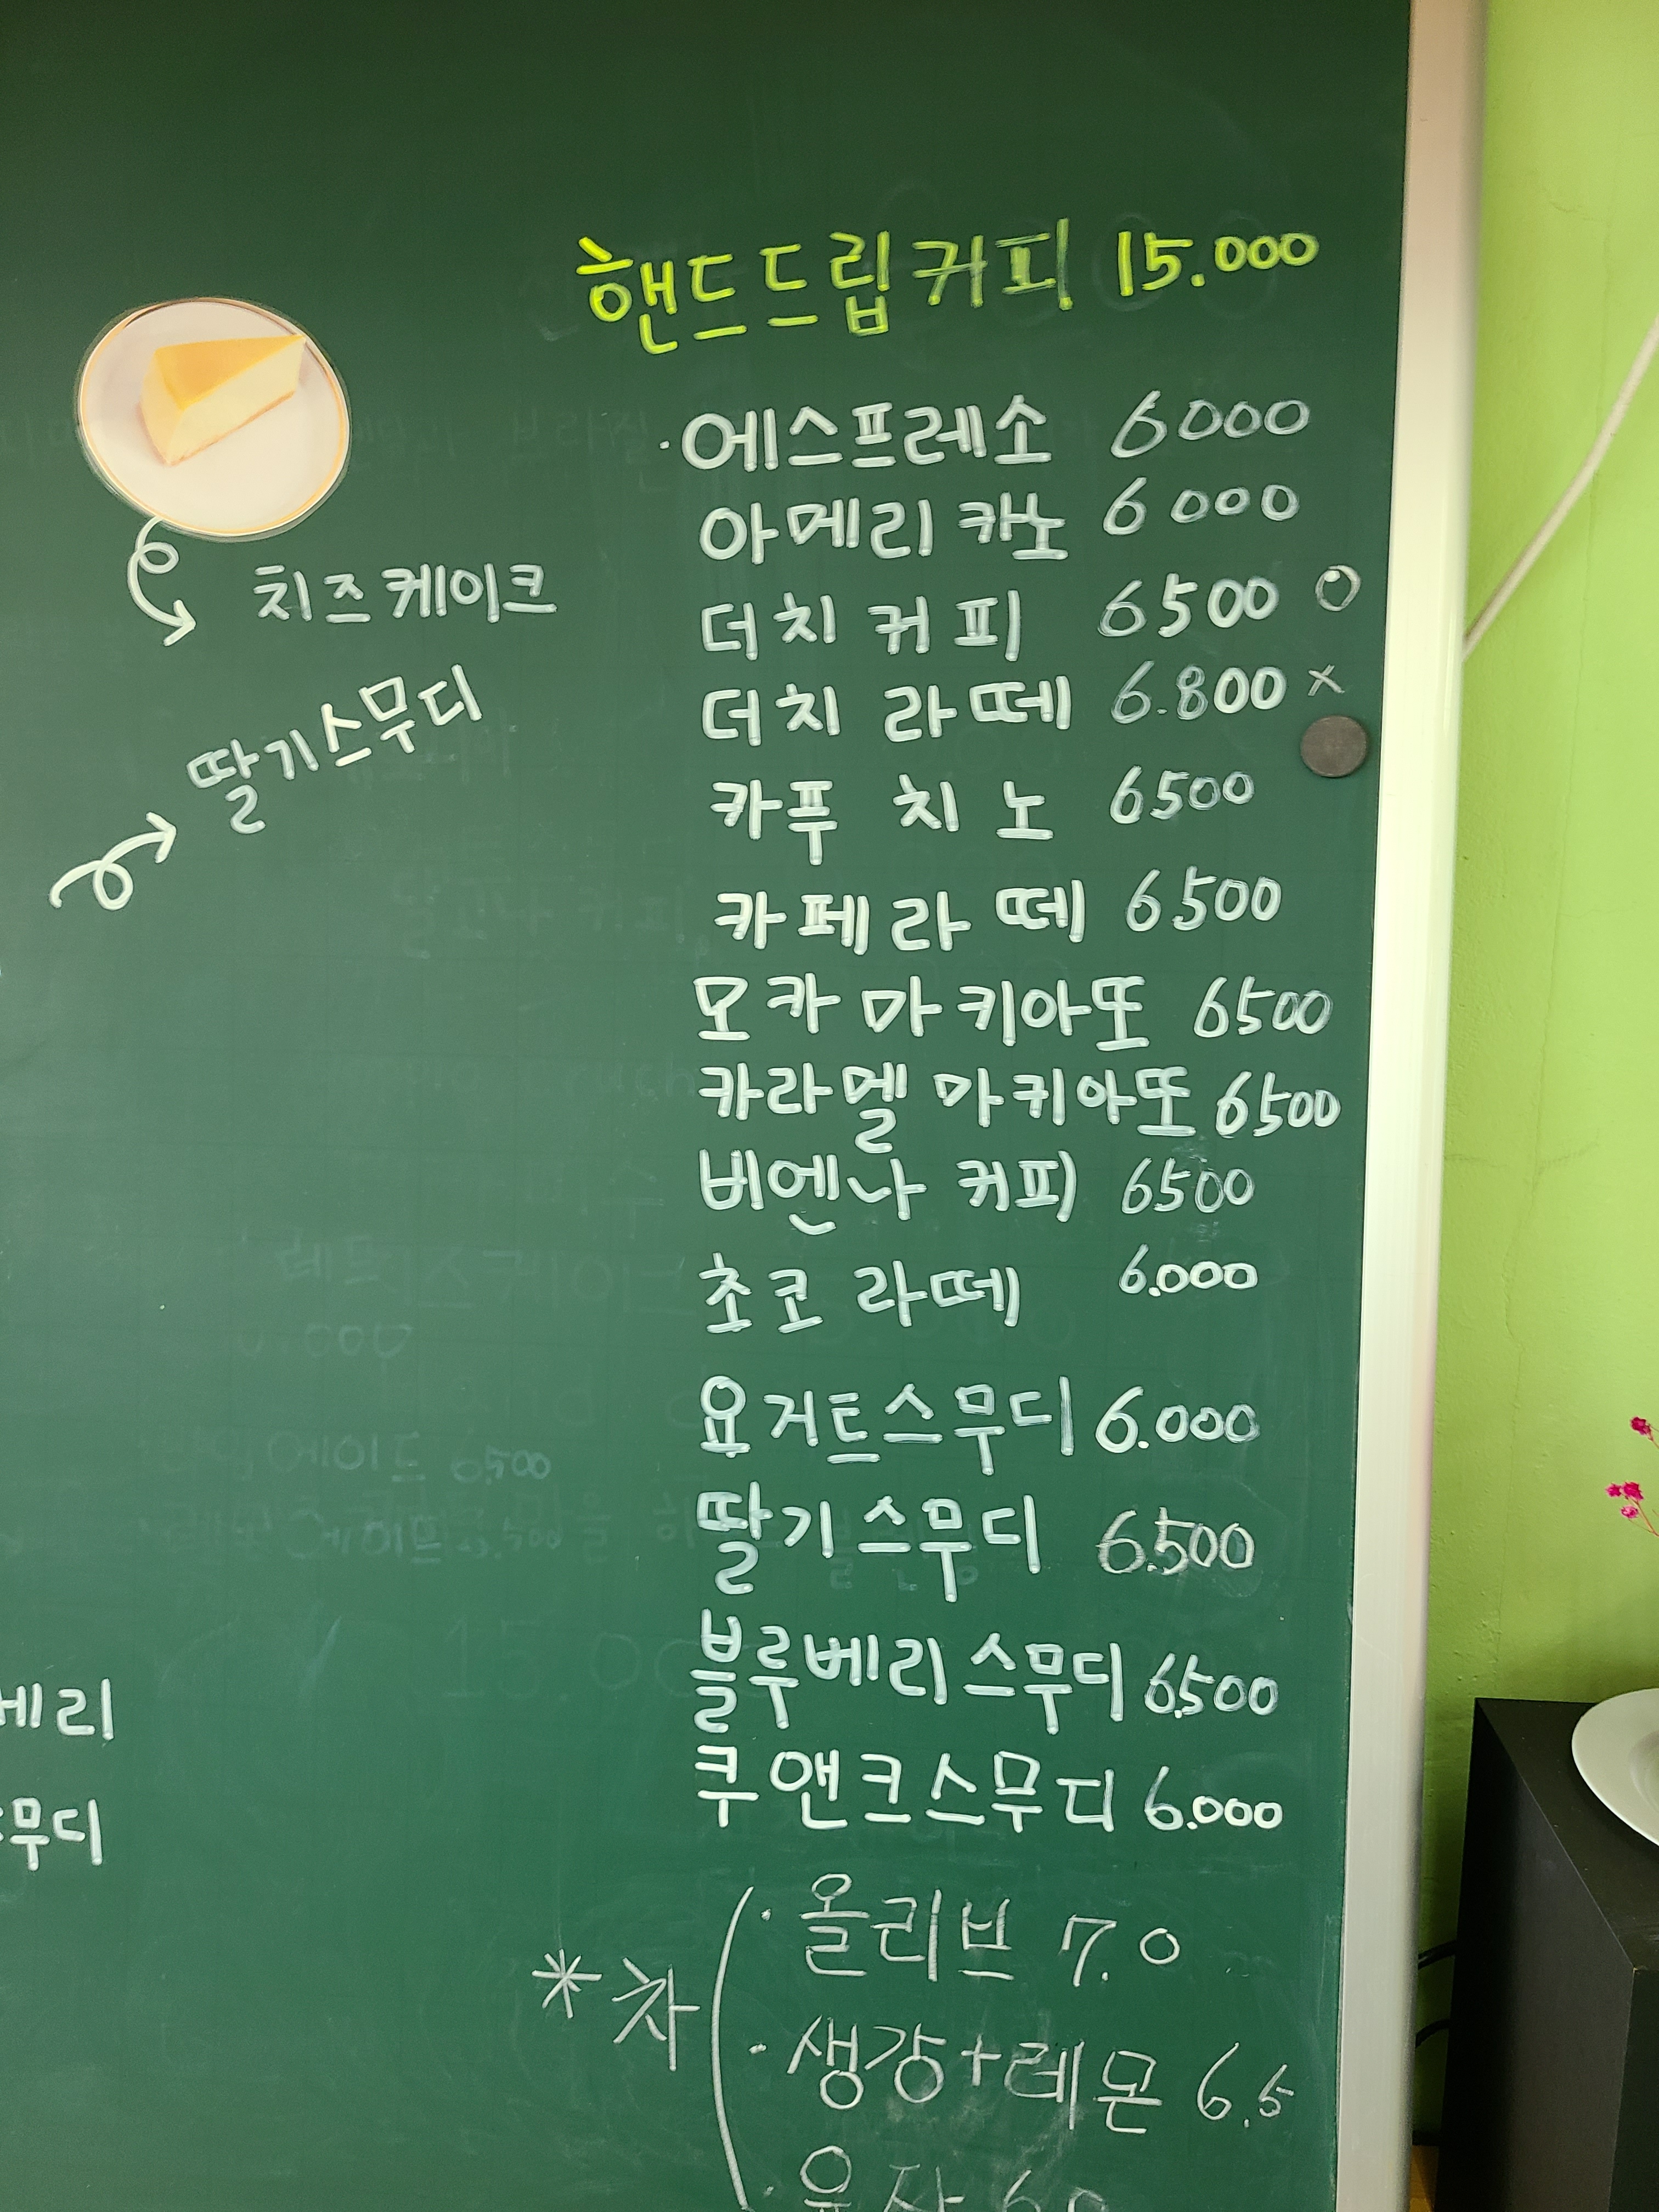 핸드드립커피 15.000
·에스프레소 6000
아메리카노 6000
더치커피 6500 O
더치 라떼 6.800 x
카푸치노 6500
카페라떼 6500
모카마키아또 6500
카라멜 마키아또 6500
비엔나 커피 6500
초코라떼 6.000
요거트스무디 6.000
딸기스무디 6.500
블루베리스무디 6.500
쿠앤크스무디 6.000
*차
·올리브 7.0
·생강+레몬 6.5
치즈케이크
딸기스무디
리
무디